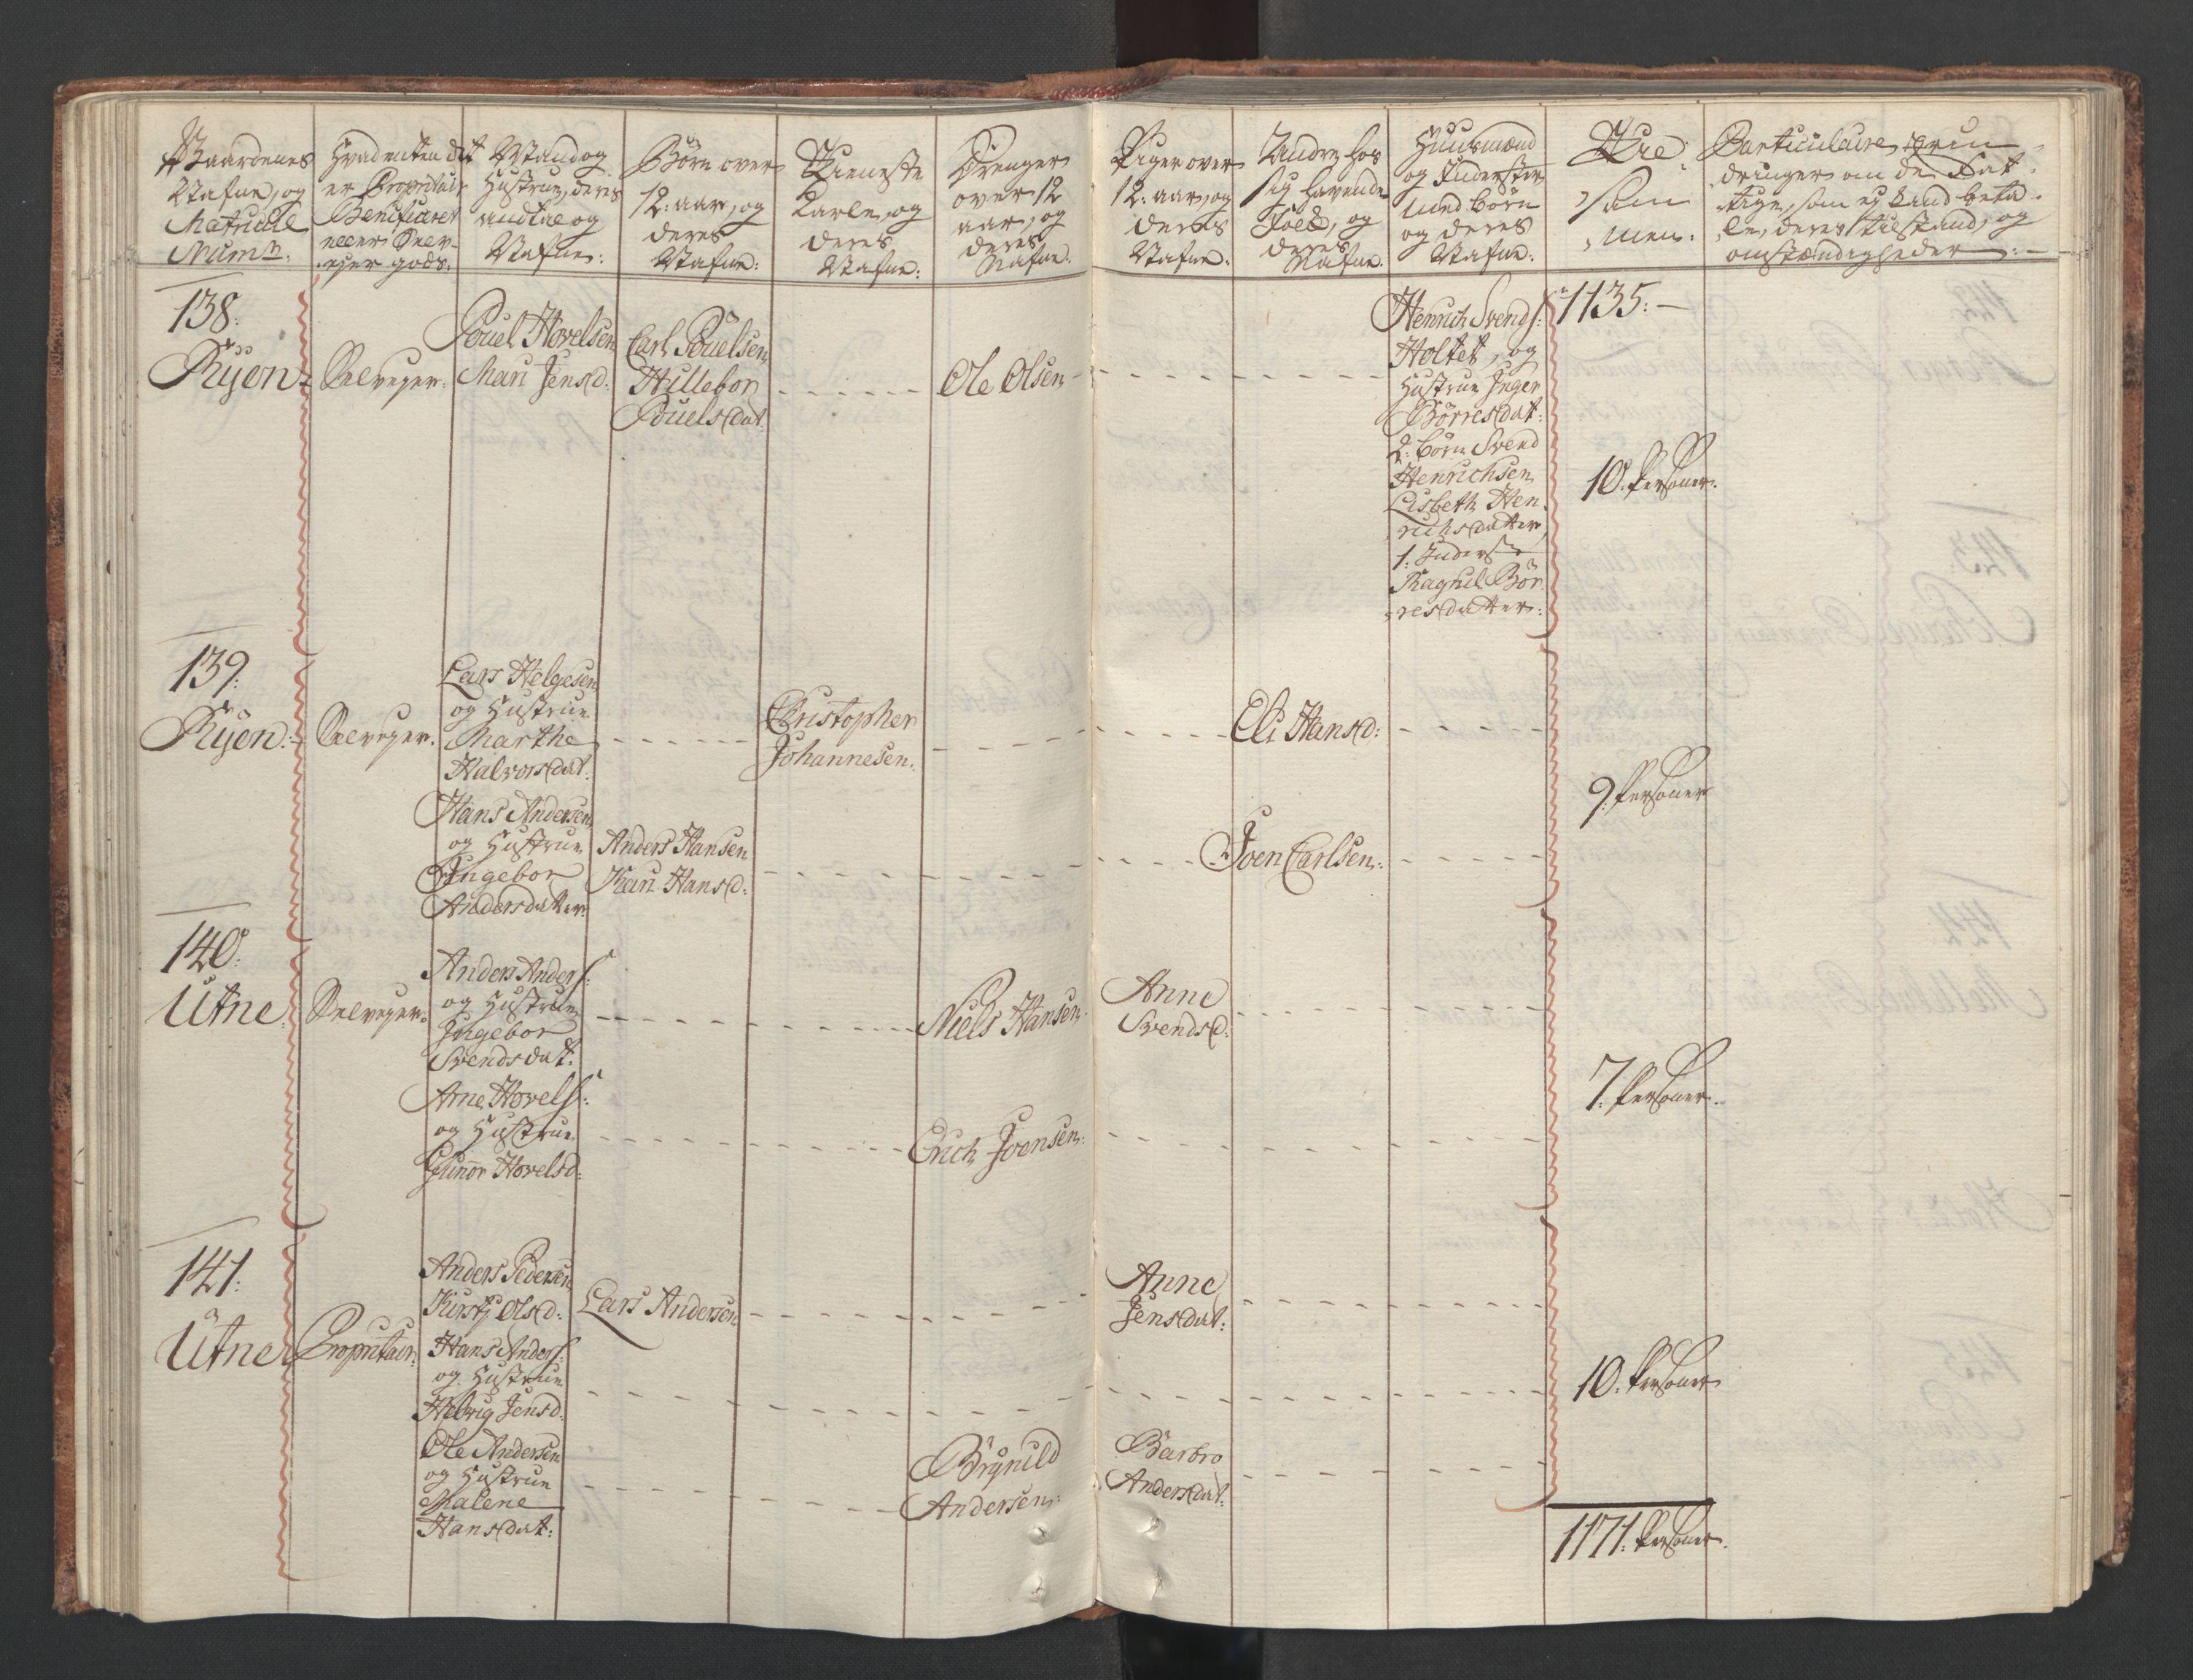 Gaardenes
Nafne, og
Matricul
Num̅:
Hvad enten det
er Propritair
Beneficeret
eller Selv-
ejer gods:
Mand og
Hustrue, deres
andtal og
Nafne:
Børn over
12: aar, og
deres
Nafne:
Tieneste
Karle, og
deres
Nafne:
Drenger
over 12
aar, og
deres
Nafne:
Piger over
12: aar, og
deres
Nafne:
Andre hos
sig havende
Folk, og
deres
Nafne:
Huusmænd
og Inderster
med børn
og deres
Nafne:
Til-
sam
men:
Particulaire erin
dringer om de Fat
tige, som ej kand beta
le, deres tilstand, og
omstændigheder :-
138:
Ryen
Selvejer.
Pouel Hovelsen
Mari Jensd:
Carl Pouelsen
Hillebor
Pouelsdat:
Ole Olsen
Henrich Svends:
Holtet, og
Hustrue Inger
Börresdat:
2: börn Svend
Henrichsen
Lisbeth Hen
richsdatter
1: Inderste
Ragnil Bör
resdatter:
1135:-
10. Personer.
139:
Ryen:
Selvejer.
Lars Helgesen
og Hustrue
Marthe
Halvorsdat:
Christopher
Johannesen.
Eli Hansd:
9. Personer
Hans Andersen
og Hustrue
Ingebor
Andersdatter
Anders Hansen
Kari Hansd:
Joen Carlsen:
140:
Utne.
Selvejer.
Anders Anders:
og Hustrue
Ingebor
Svendsdat:
Niels Hansen
Anne
Svendsd:
7. Personer.
Arne Hovels:
og Hustrue
Gunor Hovelsd:
Erich Joensen:
141:
Utne
Propritair:
Anders Pedersen
Kirstj Olsd:
Lars Andersen
Anne
Jensdat:
Hans Anders:
og Hustrue
Helvig Jensd:
10. Personer
Ole Andersen
og Hustrue
Malene
Hansdat:
Brynild
Andersen:
Barbro
Andersdat:
1171: Personer.